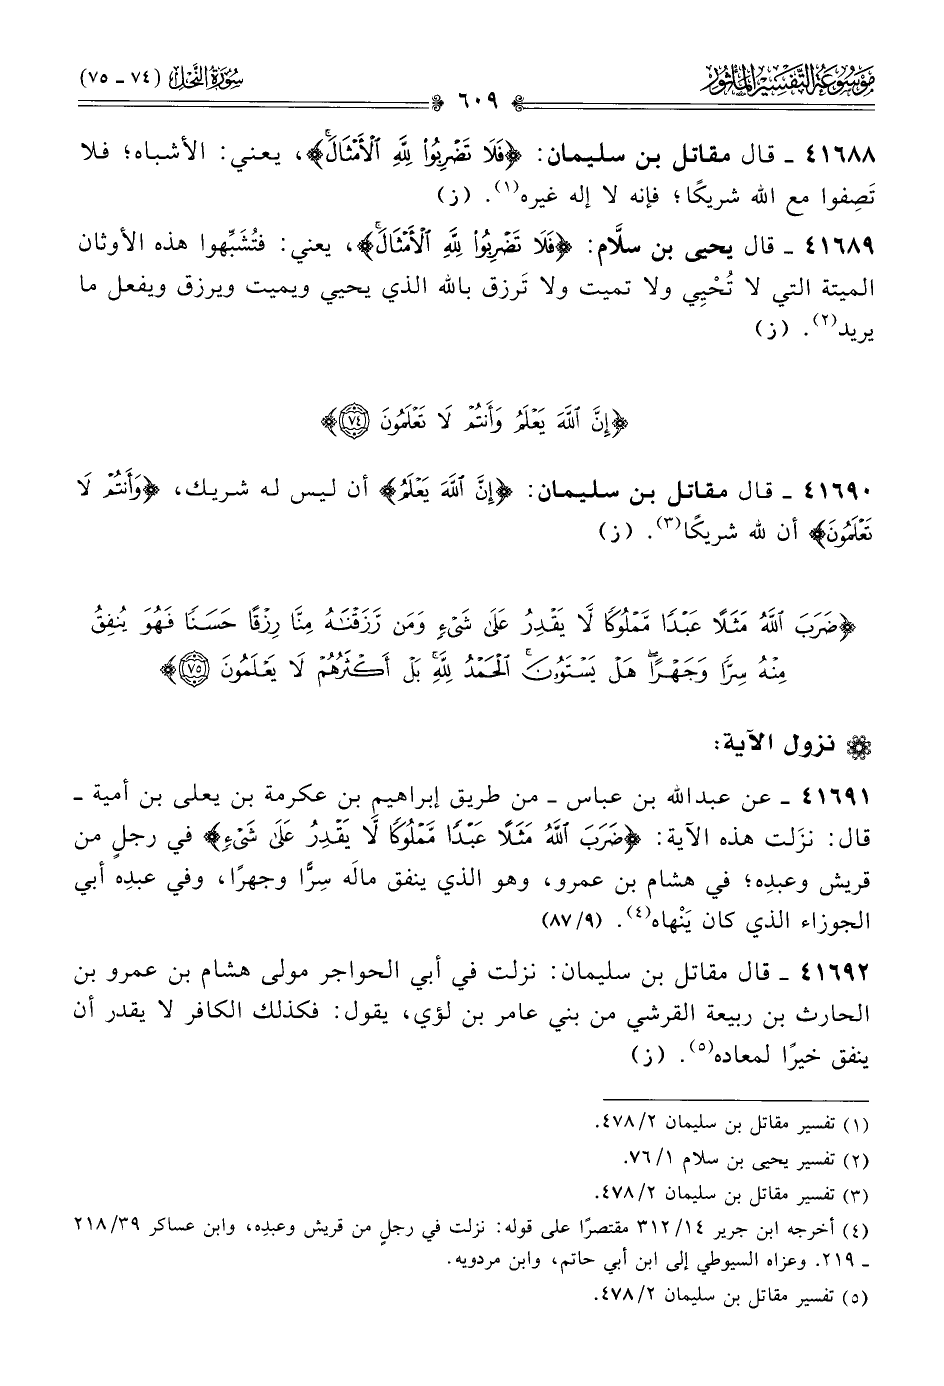 موسوعة التفسير المأثور
سورة النحل (٧٤ ـ ٧٥)
٦٠٩
٤١٦٨٨ ـ قال مقاتل بن سليمان: ﴿فَلَا تَضْرِبُوا۟ لِلَّهِ ٱلْأَمْثَالَ ۚ﴾، يعني: الأشباه؛ فلا
تَصِفوا مع الله شريكًا؛ فإنه لا إله غيره(١). (ز)
٤١٦٨٩ ـ قال يحيى بن سلَّام: ﴿فَلَا تَضْرِبُوا۟ لِلَّهِ ٱلْأَمْثَالَ ۚ﴾، يعني: فتُشَبِّهوا هذه الأوثان
الميتة التي لا تُحْيِي ولا تميت ولا تَرزق بالله الذي يحيي ويميت ويرزق ويفعل ما
يريد(٢). (ز)
﴿إِنَّ ٱللَّهَ يَعْلَمُ وَأَنتُمْ لَا تَعْلَمُونَ ٧٤﴾
٤١٦٩٠ ـ قال مقاتل بن سليمان: ﴿إِنَّ ٱللَّهَ يَعْلَمُ﴾ أن ليس له شريك، ﴿وَأَنتُمْ لَا
تَعْلَمُونَ﴾ أن لله شريكًا(٣). (ز)
﴿ضَرَبَ ٱللَّهُ مَثَلًا عَبْدًا مَّمْلُوكًا لَّا يَقْدِرُ عَلَىٰ شَىْءٍ وَمَن رَّزَقْنَـٰهُ مِنَّا رِزْقًا حَسَنًا فَهُوَ يُنفِقُ
مِنْهُ سِرًّا وَجَهْرًا ۖ هَلْ يَسْتَوُۥنَ ۚ ٱلْحَمْدُ لِلَّهِ ۚ بَلْ أَكْثَرُهُمْ لَا يَعْلَمُونَ ٧٥﴾
نزول الآية:
٤١٦٩١ ـ عن عبدالله بن عباس ـ من طريق إبراهيم بن عكرمة بن يعلى بن أمية ـ
قال: نزَلت هذه الآية: ﴿ضَرَبَ ٱللَّهُ مَثَلًا عَبْدًا مَّمْلُوكًا لَّا يَقْدِرُ عَلَىٰ شَىْءٍ﴾ في رجلٍ من
قريش وعبدِه؛ في هشام بن عمرو، وهو الذي ينفق مالَه سِرًّا وجهرًا، وفي عبدِه أبي
الجوزاء الذي كان يَنْهاه(٤). (٨٧/٩)
٤١٦٩٢ ـ قال مقاتل بن سليمان: نزلت في أبي الحواجر مولى هشام بن عمرو بن
الحارث بن ربيعة القرشي من بني عامر بن لؤي، يقول: فكذلك الكافر لا يقدر أن
ينفق خيرًا لمعاده(٥). (ز)
(١) تفسير مقاتل بن سليمان ٤٧٨/٢.
(٢) تفسير يحيى بن سلام ٧٦/١.
(٣) تفسير مقاتل بن سليمان ٤٧٨/٢.
(٤) أخرجه ابن جرير ٣١٢/١٤ مقتصرًا على قوله: نزلت في رجلٍ من قريش وعبدِه، وابن عساكر ٢١٨/٣٩
ـ ٢١٩. وعزاه السيوطي إلى ابن أبي حاتم، وابن مردويه.
(٥) تفسير مقاتل بن سليمان ٤٧٨/٢.